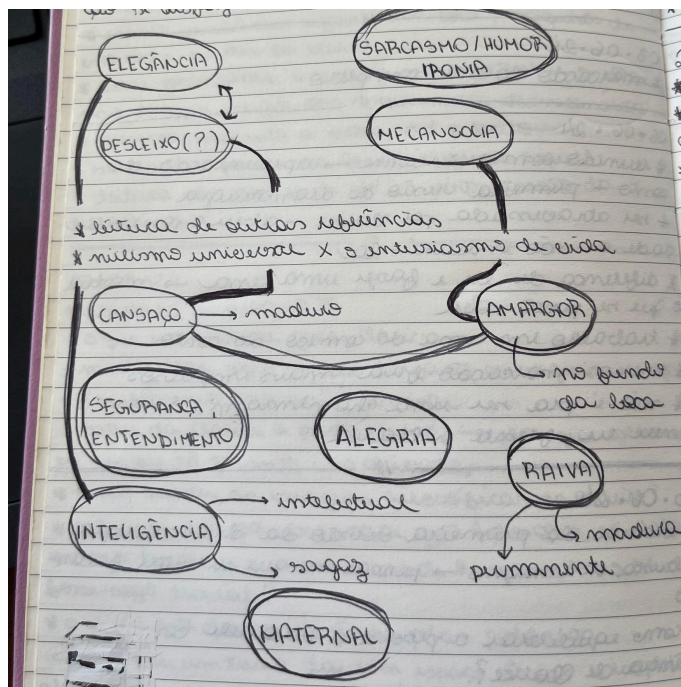 ELEGÂNCIA
SARCASMO/HUMOR
IRONIA
DESLEIXO(?)
MELANCOLIA
* leitura de outras referências
* niilismo universal X o intusiasmo de vida
CANSAÇO → maduro
AMARGOR
→ no fundo
da boca
SEGURANÇA,
ENTENDIMENTO
ALEGRIA
RAIVA
→ madura
permanente
INTELIGÊNCIA
→ intelectual
→ sagaz
MATERNAL